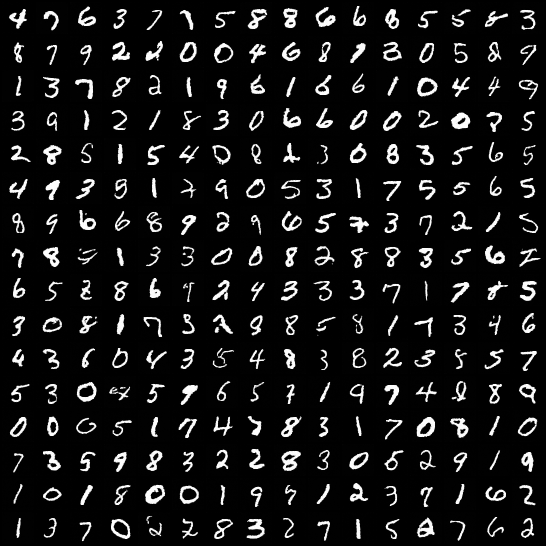 4 7 6 3 7 1 5 8 8 6 6 8 5 5 8 3
8 7 9 2 2 0 0 4 6 8 9 3 0 5 8 9
1 3 7 8 2 1 9 6 1 6 6 1 0 4 4 9
3 9 1 2 1 8 3 0 6 6 0 0 2 0 8 5
2 8 5 1 5 4 0 8 1 3 0 8 3 5 6 5
4 9 3 8 1 2 9 0 5 3 1 7 5 5 6 5
8 9 6 6 8 9 2 9 6 5 7 3 7 2 1 5
7 8 5 1 3 3 0 0 8 2 8 8 3 5 6 2
6 5 2 8 6 9 2 4 3 3 3 7 1 7 8 5
3 0 8 1 7 3 2 9 8 5 8 1 7 3 4 6
4 3 6 0 4 3 5 4 8 3 8 2 3 8 5 7
5 3 0 5 9 6 5 7 1 9 7 4 8 8 9
0 0 0 5 1 7 4 7 8 3 1 7 0 8 1 0
7 3 5 9 8 3 2 2 8 3 0 5 2 9 1 9
1 0 1 8 0 0 1 9 9 1 2 3 7 1 6 2
1 3 7 0 2 2 8 3 2 7 1 5 2 7 6 2